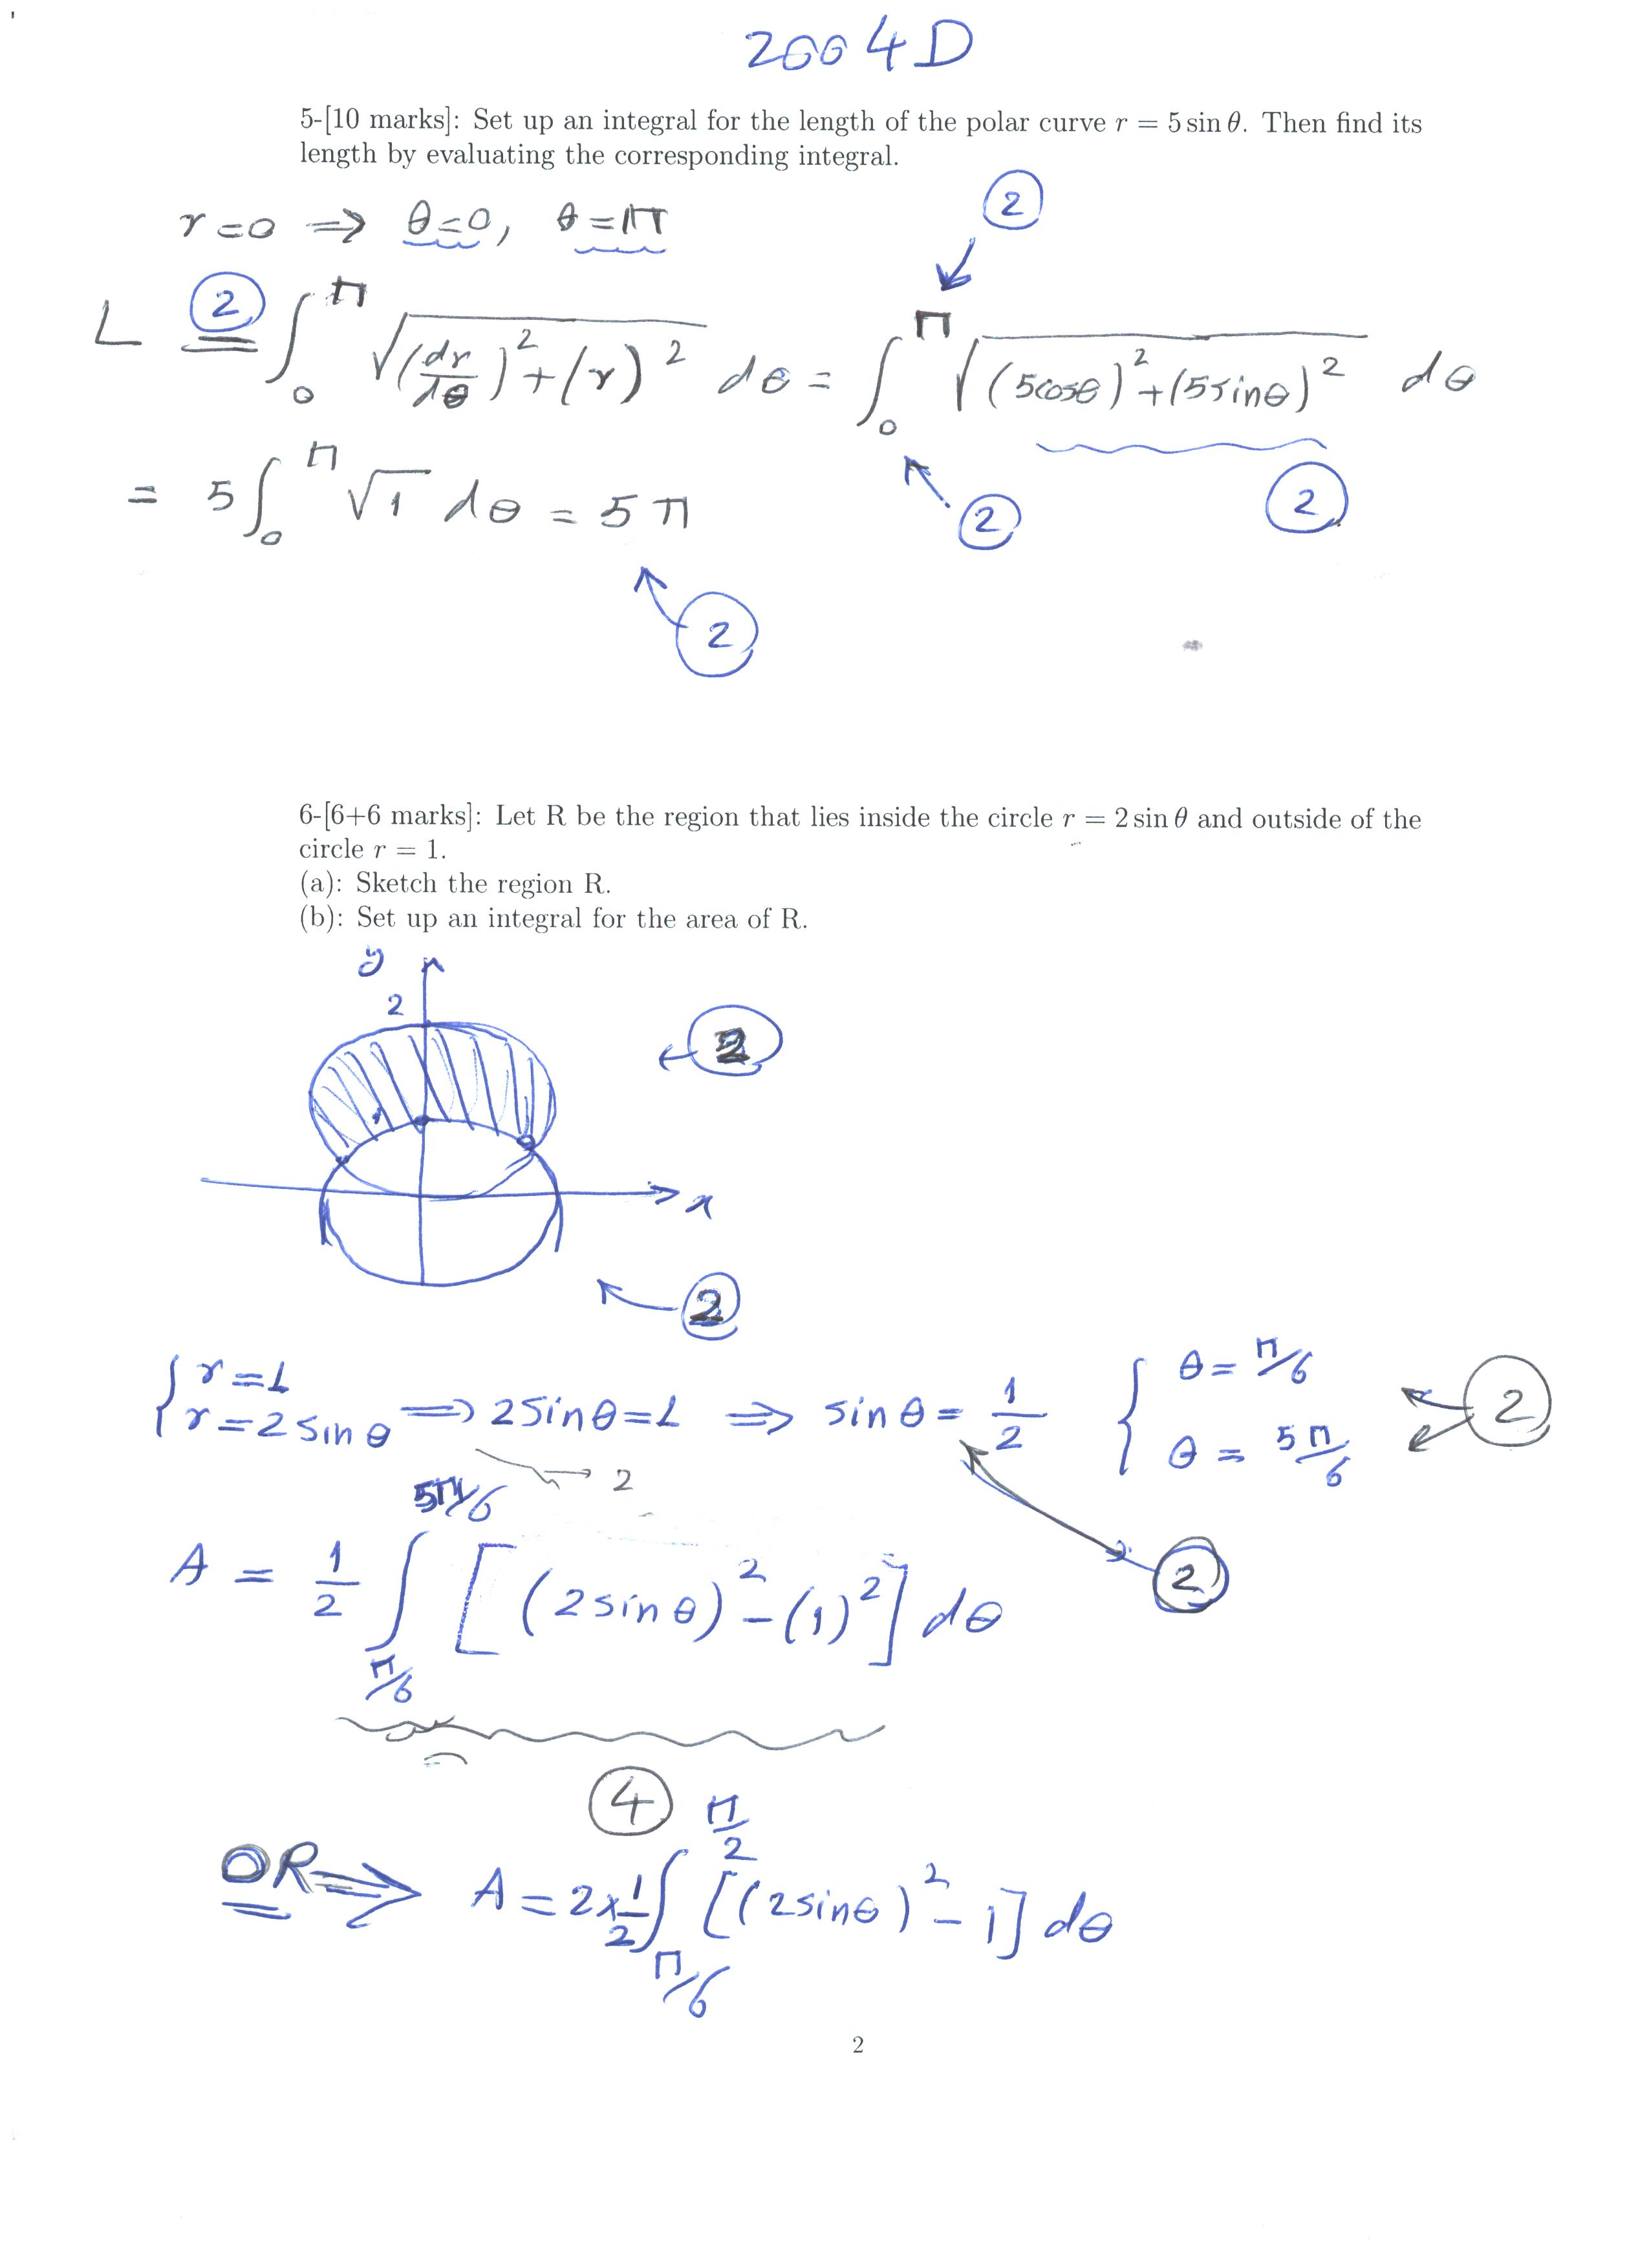 2004D
5-[10 marks]: Set up an integral for the length of the polar curve r = 5 sin θ. Then find its
length by evaluating the corresponding integral.
r=0 ⇒ θ=0, θ=π
2
L = 2 ∫₀^π √((dr/dθ)² + (r)²) dθ = ∫₀^π √((5cosθ)² + (5sinθ)²) dθ
= 5 ∫₀^π √1 dθ = 5π
2
2
2
6-[6+6 marks]: Let R be the region that lies inside the circle r = 2 sin θ and outside of the
circle r = 1.
(a): Sketch the region R.
(b): Set up an integral for the area of R.
y
2
2
x
2
{ r=1
r=2sinθ ⇒ 2sinθ=1 ⇒ sinθ = 1/2 { θ = π/6
θ = 5π/6
2
2
A = 1/2 ∫_{π/6}^{5π/6} [(2sinθ)² - (1)²] dθ
2
4
OR ⇒ A = 2×1/2 ∫_{π/6}^{π/2} [(2sinθ)² - 1] dθ
2